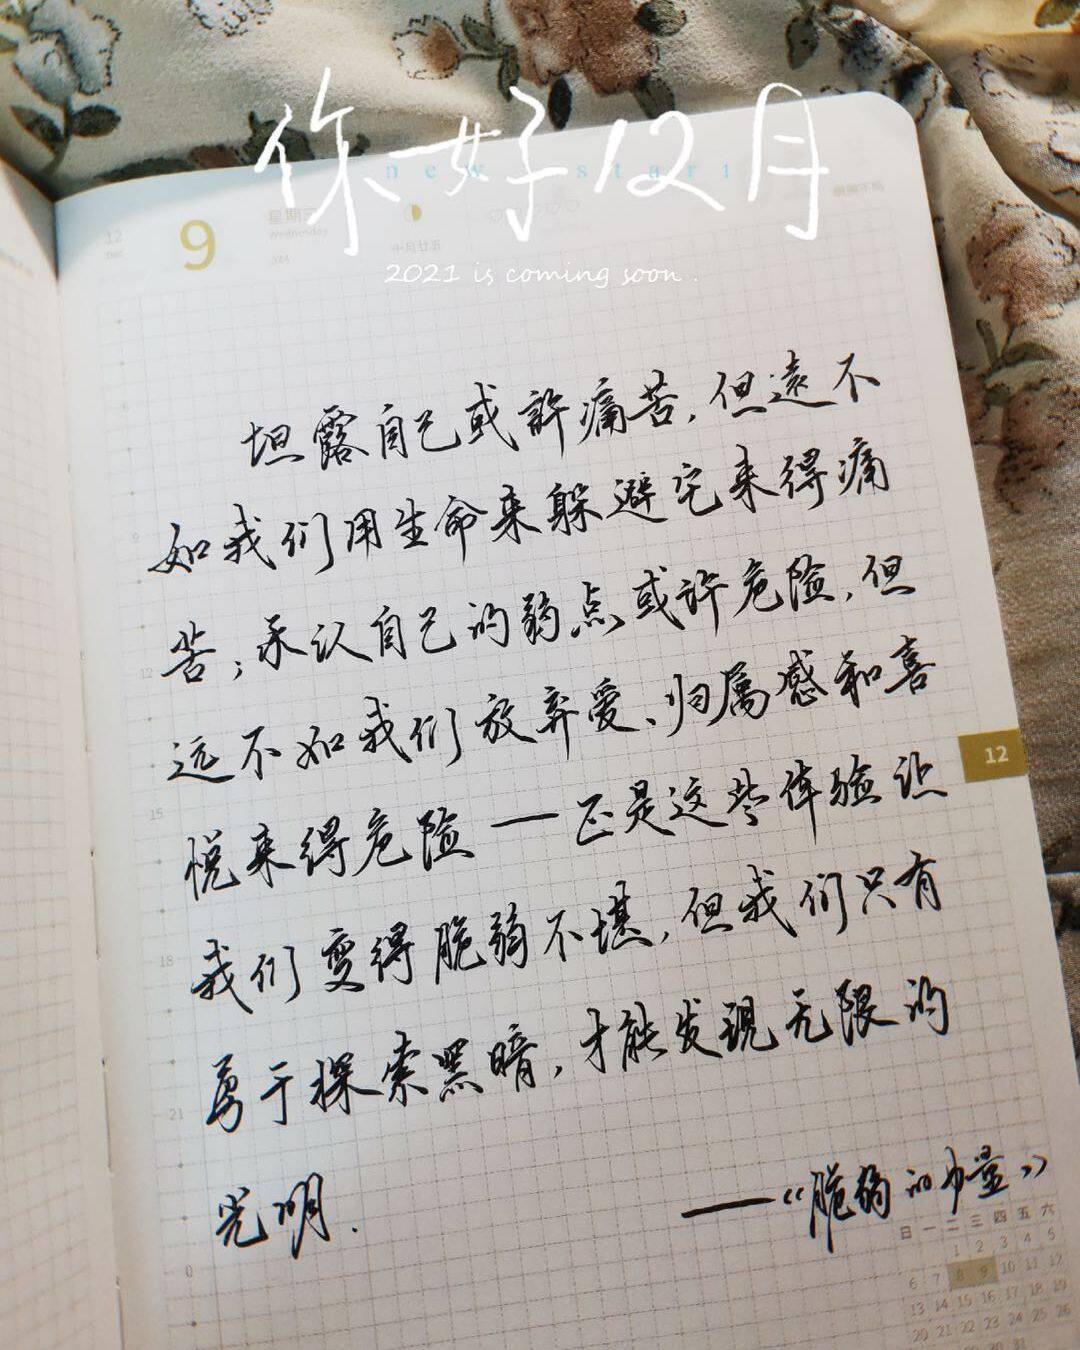 你好12月
new start
2021 is coming soon.
12
Dec
9
星期三
Wednesday
344
十月廿五
坦露自己或許痛苦,但遠不
如我们用生命来躲避它来得痛
苦;承认自己的弱点或许危险,但
远不如我们放弃爱、归属感和喜
悦来得危险——正是这些体验让
我们变得脆弱不堪,但我们只有
勇于探索黑暗,才能发现无限的
光明.
——《脆弱的力量》
9
12
15
18
21
0
12
日 一 二 三 四 五 六
1 2 3 4 5
6 7 8 9 10 11 12
13 14 15 16 17 18 19
20 21 22 23 24 25 26